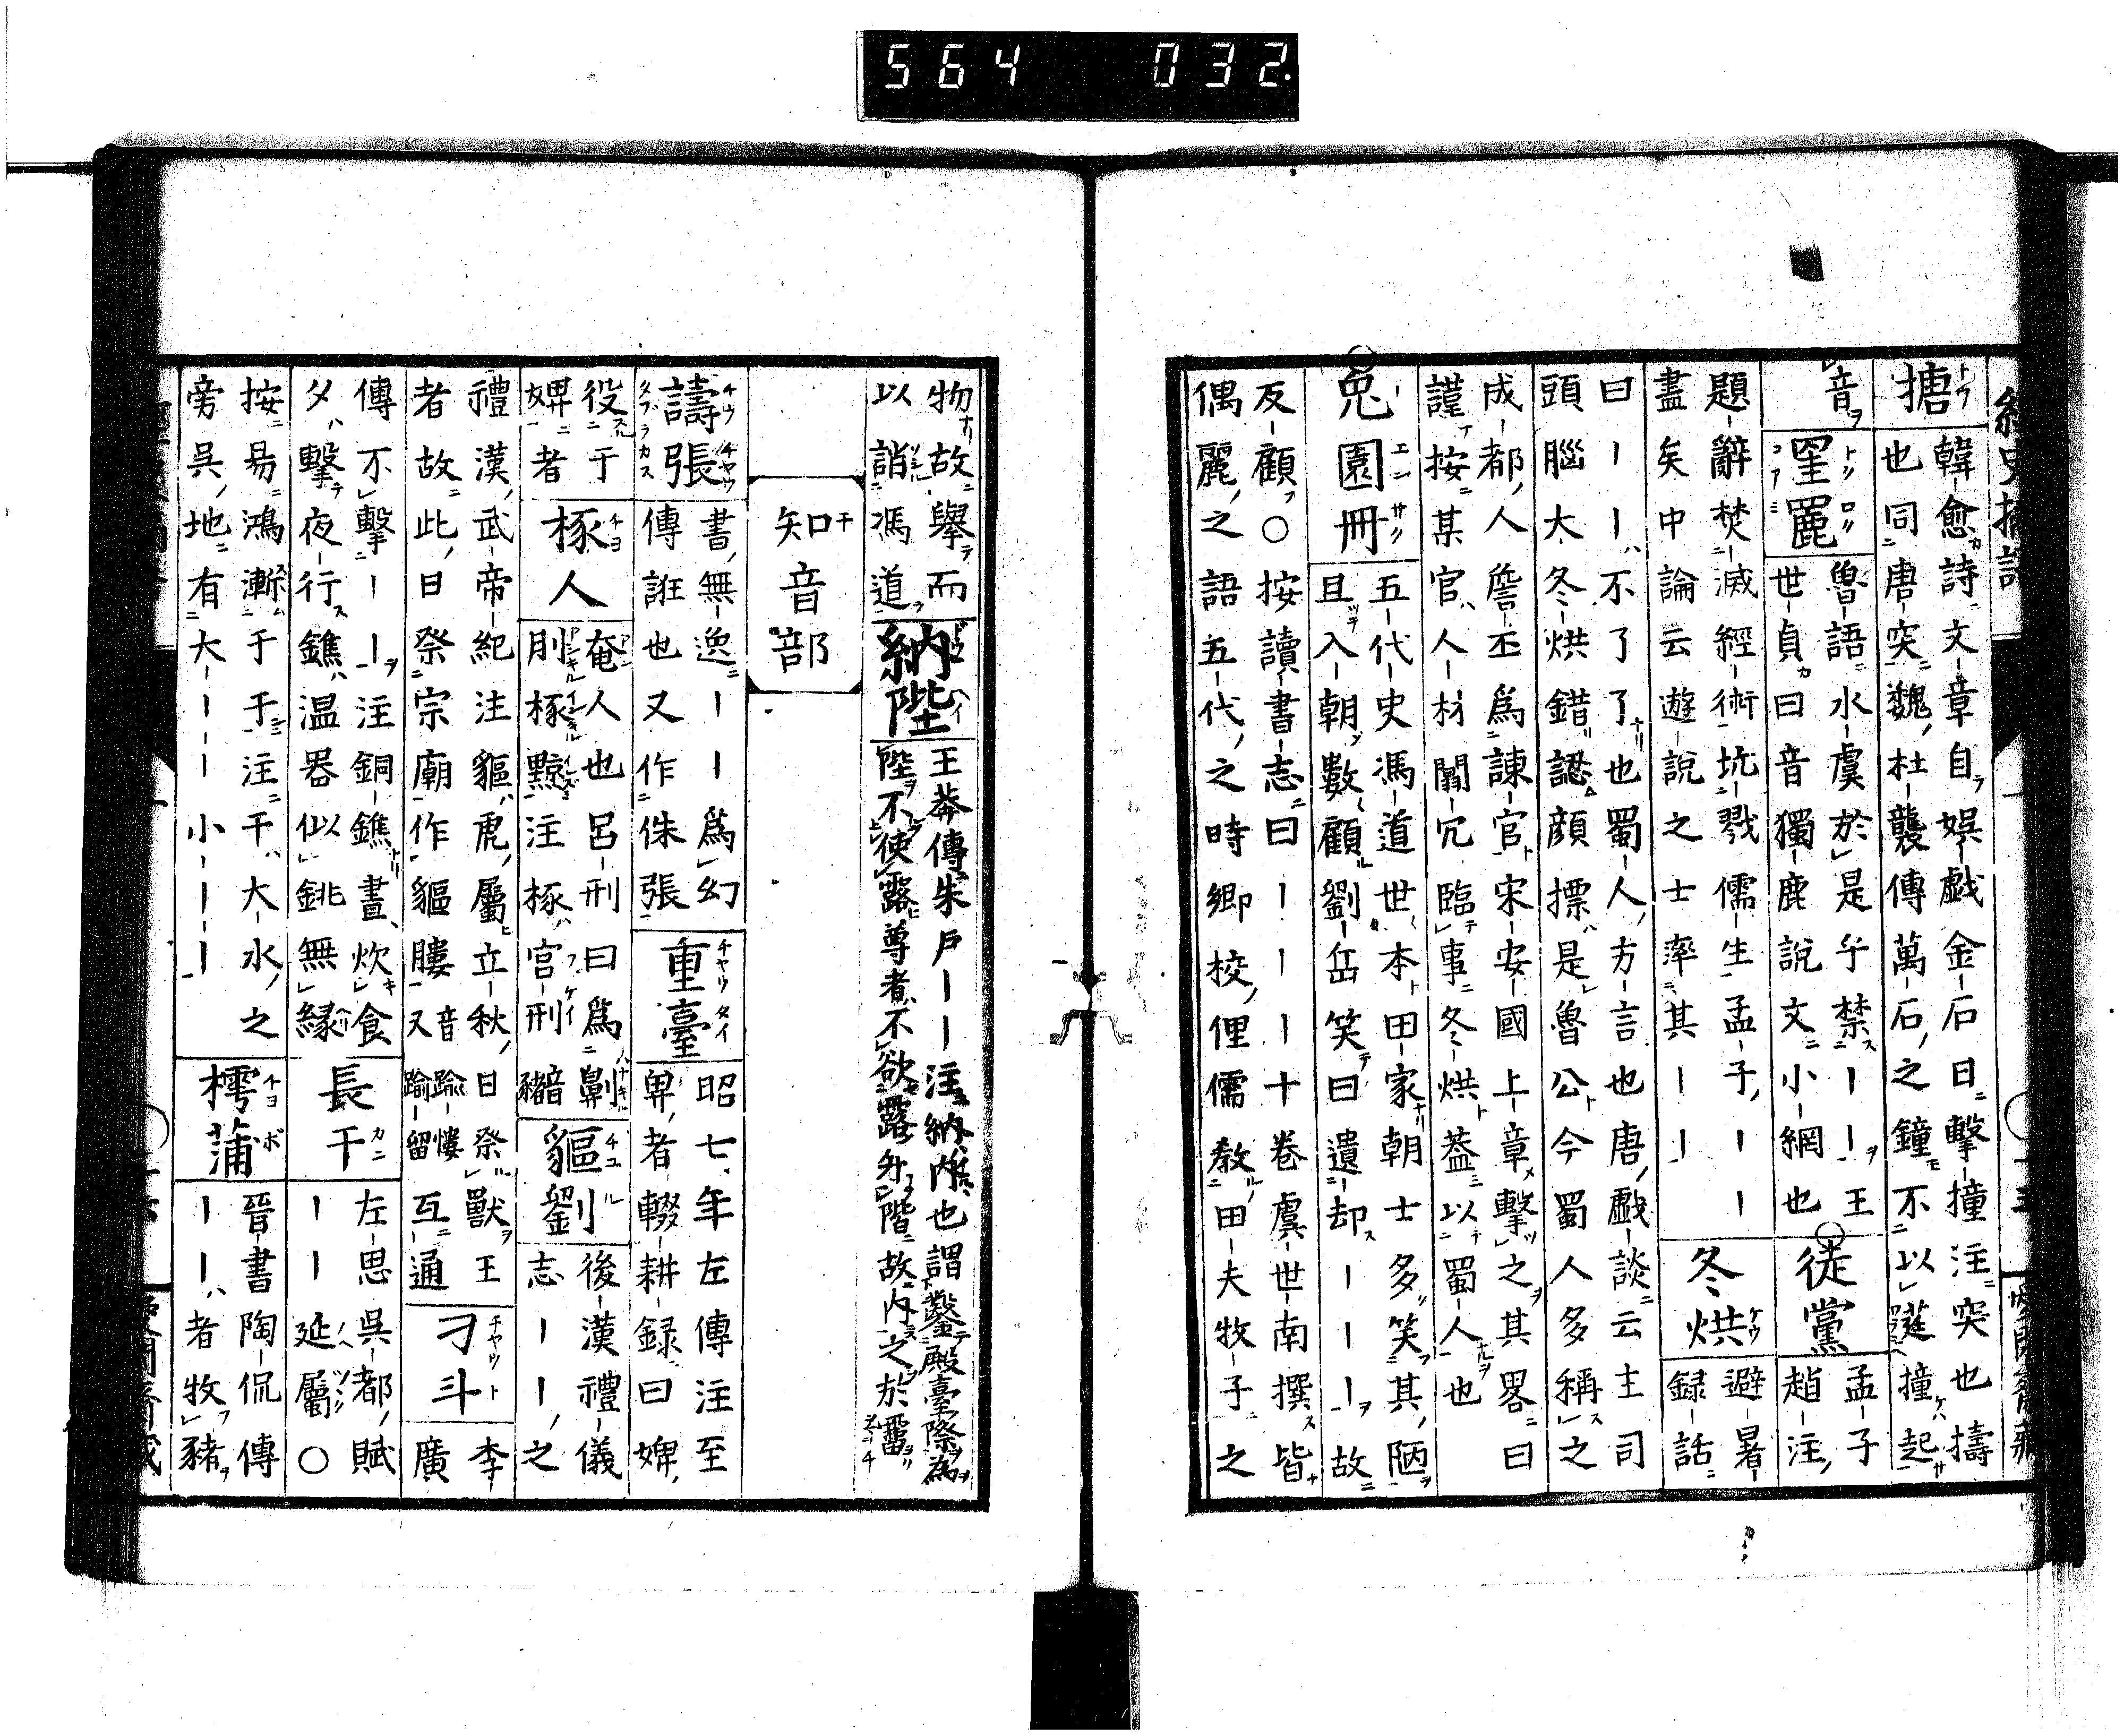 564 032
搪
韓愈詩文章自娯戯金石日撃撞注突也擣
也同唐突魏杜襲傳萬石之鐘不以莛撞起
音
罜䍡
魯語水虞於是乎禁ーー王
世貞曰音獨鹿説文小網也
徒黨
孟子
趙注
題辭焚滅經術坑戮儒生孟子ーー
盡矣中論云遊説之士率其ーー
冬烘
避暑
録話
曰ーー不了了也蜀人方言也唐戯談云主司
頭腦大冬烘錯認顔摽是魯公今蜀人多稱之
成都人詹丕爲諫官宋安國上章撃之其畧曰
謹按某官人材闒冗臨事冬烘葢以蜀人也
兎園冊
五代史馮道世本田家朝士多笑其陋
且入朝數顧劉岳笑曰遺却ーーー故
反顧○按讀書志曰ーーー十巻虞世南撰皆
偶麗之語五代之時郷校俚儒教田夫牧子之
物故擧而
以誚馮道
納陛
王莽傳朱戸ーー注納内也謂鑿殿臺際為
陛不使露尊者不欲露升階故内之於霤
知音部
譸張
書無逸ーー爲幻
傳誑也又作侏張
重臺
昭七年左傳注至
卑者輟耕録曰婢
役于
婢者
椓人
奄人也呂刑曰爲劓
刖椓黥注椓宮刑音豬
貙劉
後漢禮儀
志ーー之
禮漢武帝紀注貙虎屬立秋日祭獸王
者故此日祭宗廟作貙膢音踰慺又踰留互通
刁斗
李
廣
傳不撃ーー注銅鐎晝炊食
夕撃夜行鐎温器似銚無縁
長干
左思呉都賦
ーー延屬○
按易鴻漸于干注干大水之
旁呉地有大ーー小ーー
樗蒲
晉書陶侃傳
ーー者牧豬